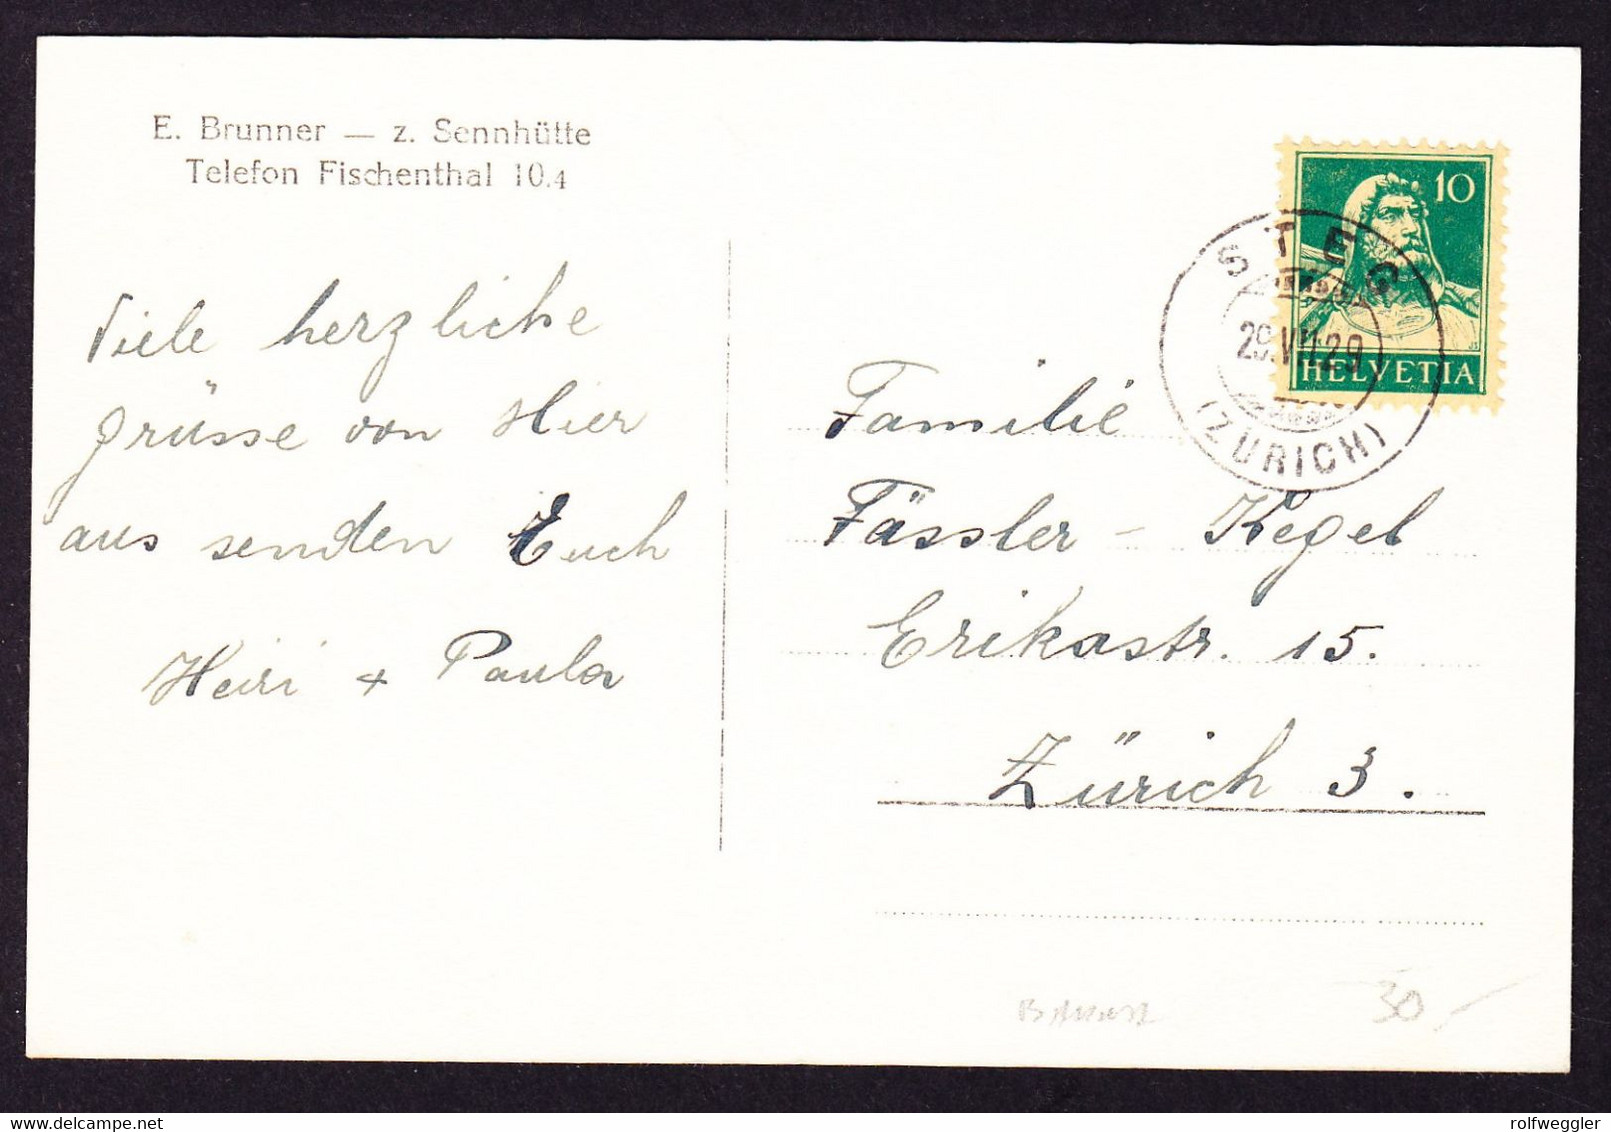 E. Brunner — z. Sennhütte
Telefon Fischenthal 10.4
Viele herzliche
Grüsse von Hier
aus senden Euch
Heiri + Paula
10
HELVETIA
STEG
(ZÜRICH)
Familie
Fässler - Kegel
Erikastr. 15.
Zürich 3.
30
rolfweggler